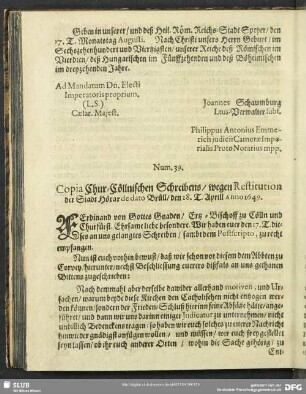 Geben in unserer / und deß Heil. Röm. Reichs-Statt Speyer / den
17. T. Monatstag Augusti. Nach Christi unsers Herrn Geburt / im
Sechszehenhundert und Viertzigsten / unserer Reiche deß Römischen im
Vierdten / deß Hungarischen im Fünffzehenden und deß Böhmischen
im dreyzehenden Jahre.
Ad Mandatum Dn. Electi
Imperatoris proprium.
(L.S.)
Cæsar. Majest.
Joannes Schaumburg
Verwalter subs.
Philippus Antonius Emme-
rich judicii Cameræ Impe-
rialis Proto Notarius mpp.
Num. 39.
Copia Chur-Cöllnischen Schreibens / wegen Restitution
der Stadt Höxar de dato Brüll / den 28. T. Aprill Anno 1649.
Ferdinand von Gottes Gnaden / Ertz-Bischoff zu Cölln und
Churfürst. Ehrsame liebe besondere. Wir haben euer den 17. T. die-
ses an uns gelangtes Schreiben / sambt dem Postscripto, zu recht
empfangen.
Nun ist euch vorhin bewust / daß wir schon vor diesem dem Abbten zu
Corvey hierunter / nechst Beyschliessung euerer diffals an uns gethanen
Bittens zugeschrieben:
Nach demmahl aber derselbe dawider allerhand motiven, und Ur-
sachen / warum beyde diese Kirchen den Catholischen nicht entzogen wer-
den können / sondern der Frieden-Schluß hierinn seine Abfälle hätte / ange-
führet / und dann wir uns darinn einiger Judicatur zu unternehmen / nicht
unbillich Bedenckens tragen: so haben wir euch solches zu eurer Nachricht
hinwieder gnädigst anfügen wollen / und müssen / wir euch freygestellet
seyn lassen / ob ihr euch anderer Orten / wohin die Sache gehörig / zu
Ent-
SLUB